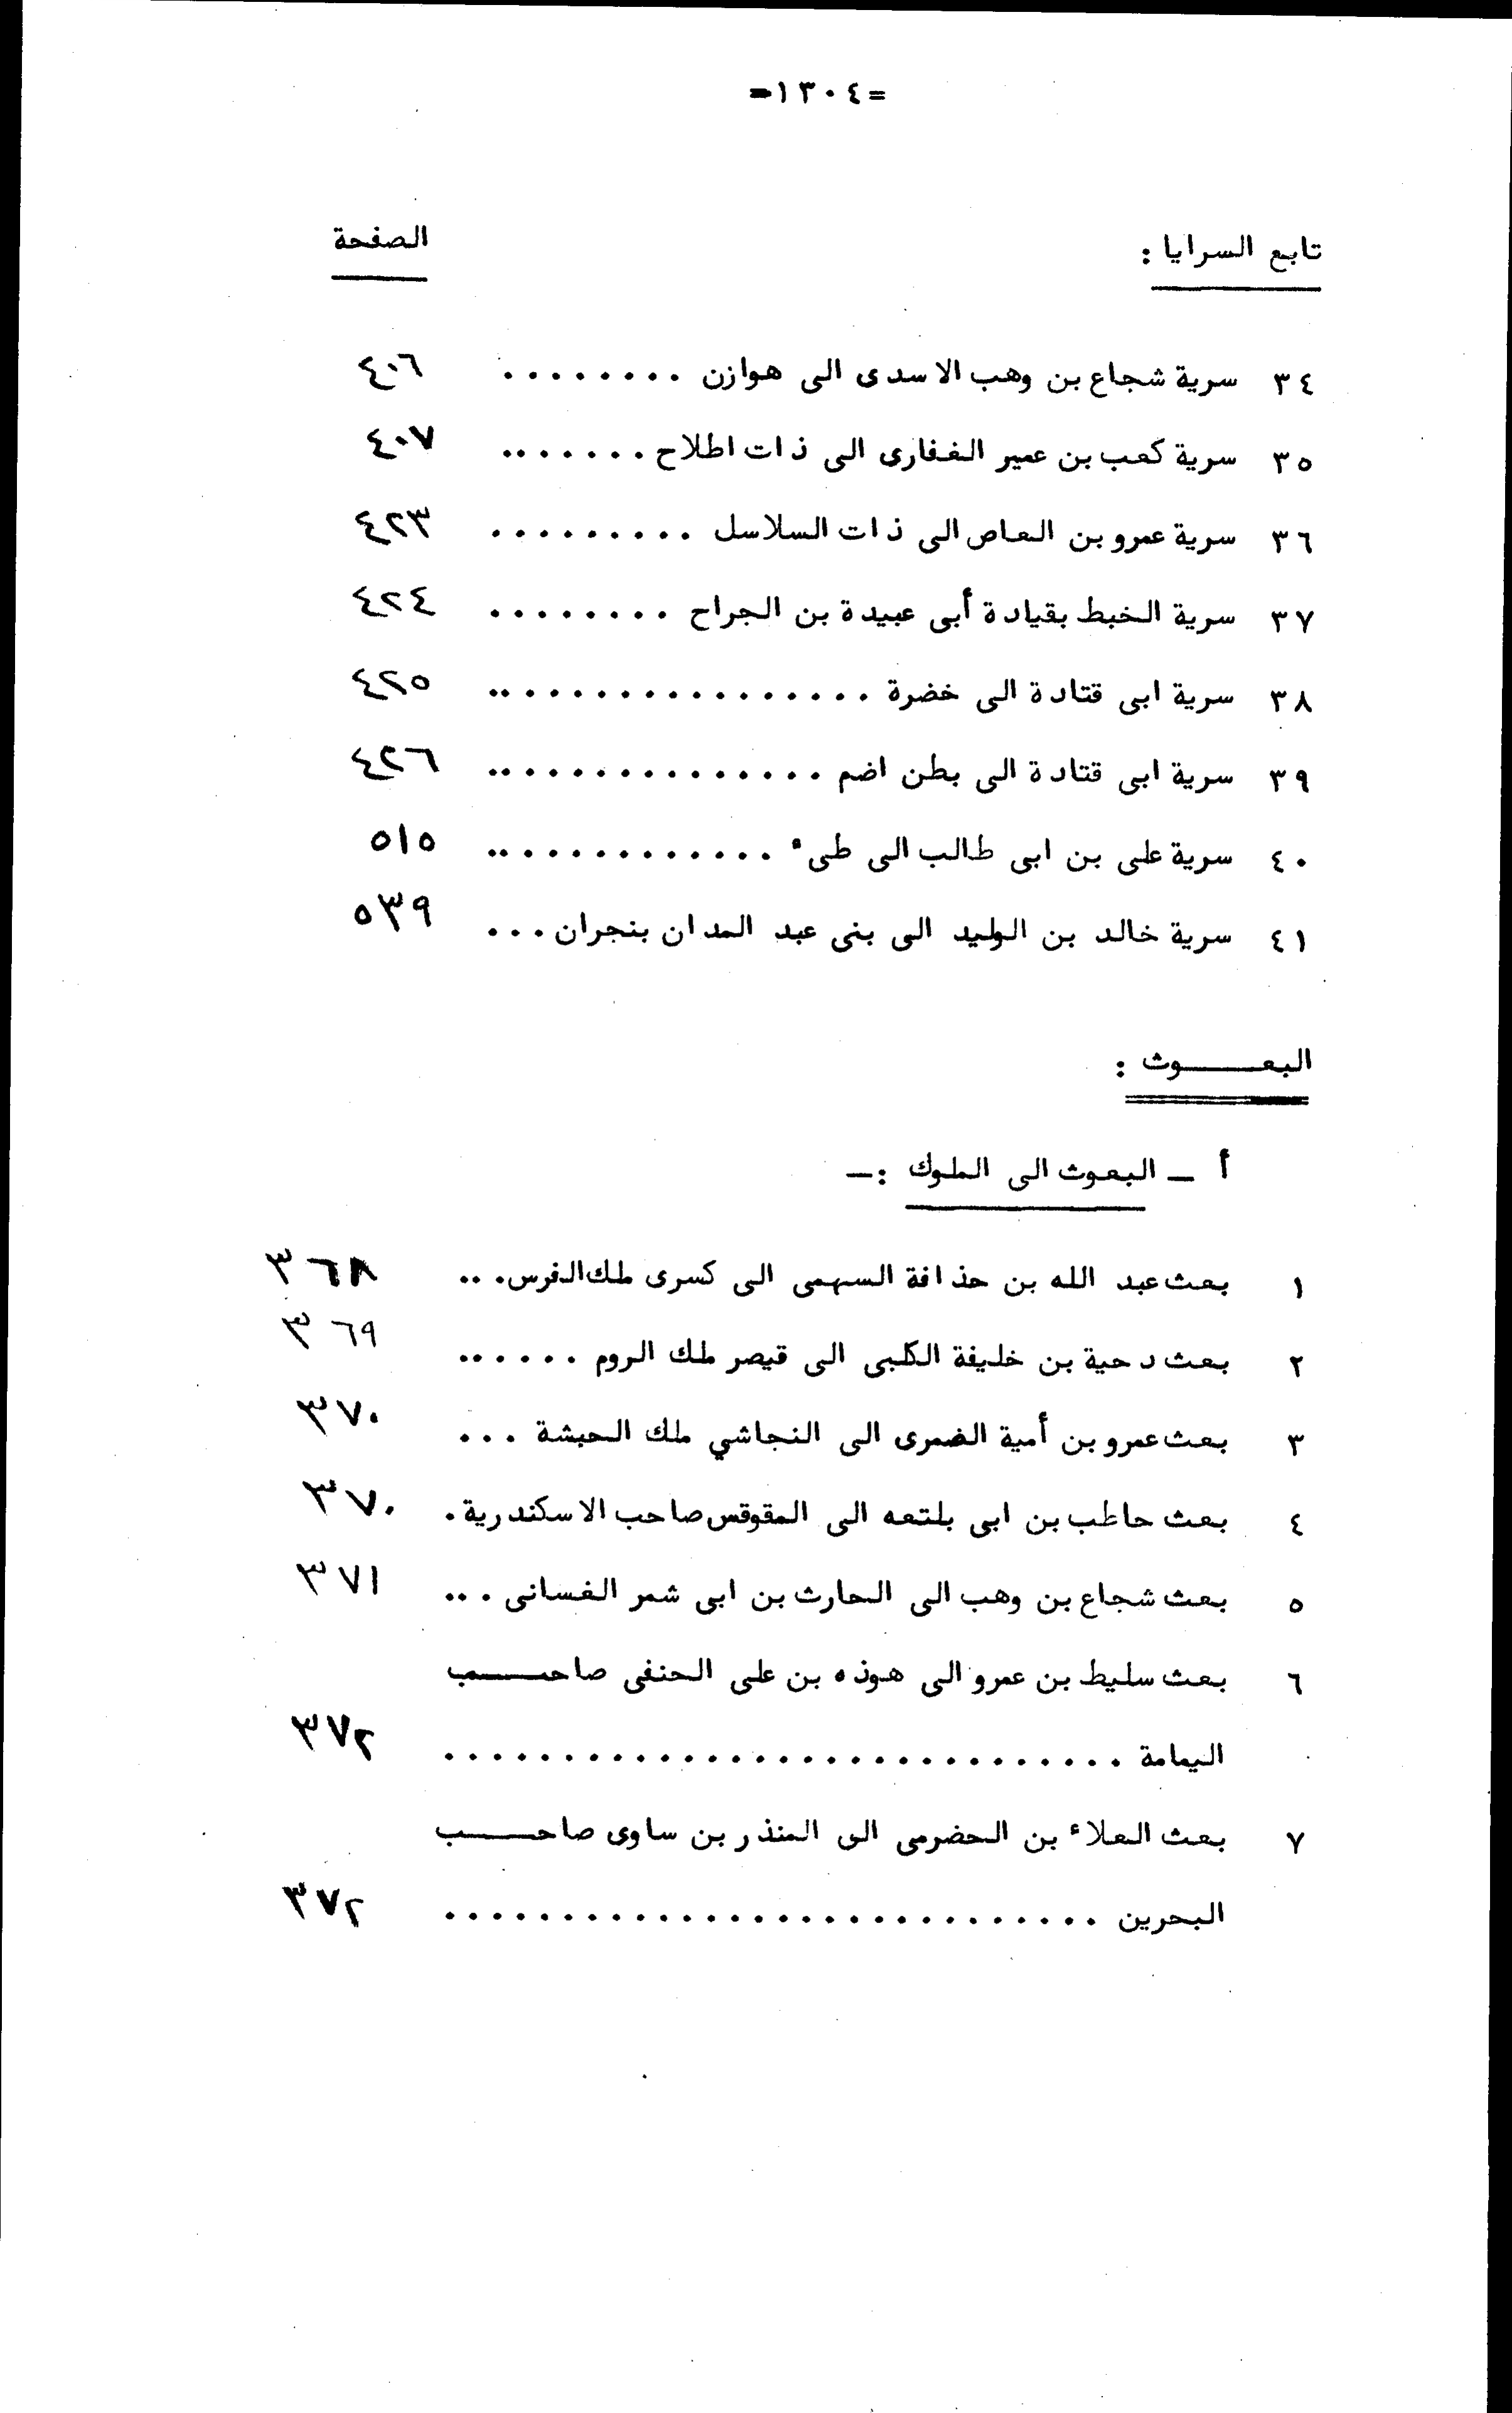 =١٣٠٤=
تابع السرايا : الصفحة
٣٤ سرية شجاع بن وهب الاسدى الى هوازن ........ ٤٠٦
٣٥ سرية كعب بن عمير الغفارى الى ذات اطلاح ........ ٤٠٧
٣٦ سرية عمرو بن العاص الى ذات السلاسل ......... ٤٢٣
٣٧ سرية الخبط بقيادة أبى عبيدة بن الجراح ........ ٤٢٤
٣٨ سرية ابى قتادة الى خضرة ................. ٤٢٥
٣٩ سرية ابى قتادة الى بطن اضم ............... ٤٢٦
٤٠ سرية على بن ابى طالب الى طىء ............. ٥١٥
٤١ سرية خالد بن الوليد الى بنى عبد المدان بنجران ... ٥٣٩
البعـــــوث :
أ - البعوث الى الملوك :-
١ بعث عبد الله بن حذافة السهمى الى كسرى ملك الفرس... ٣٦٨
٢ بعث دحية بن خليفة الكلبى الى قيصر ملك الروم ...... ٣٦٩
٣ بعث عمرو بن أمية الضمرى الى النجاشي ملك الحبشة ... ٣٧٠
٤ بعث حاطب بن ابى بلتعه الى المقوقس صاحب الاسكندرية . ٣٧٠
٥ بعث شجاع بن وهب الى الحارث بن ابى شمر الغسانى ... ٣٧١
٦ بعث سليط بن عمرو الى هوذه بن على الحنفى صاحـــــب
اليمامة ............................. ٣٧٢
٧ بعث العلاء بن الحضرمى الى المنذر بن ساوى صاحـــــب
البحرين ............................ ٣٧٢